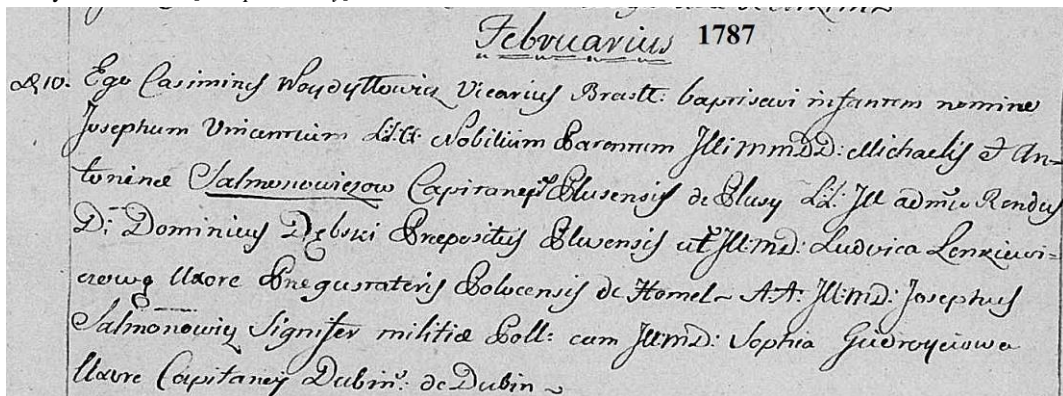 Februarius 1787
D 10. Ego Casimirus Woydyłłowicz Vicarius Brasl: baptisavi infantem nomine
Josephum Vincentium LL: Nobilium Parentum Illmm DD: Michaelis et An-
toninæ Salmonowiczow Capitanej Plusensis de Plusy LL: Ill admɔ̃ Rendus
D: Dominicus Dębski Prepositus Plusensis et Ill:mD: Ludvica Lenkiewi-
czowa Uxore Pregustatoris Polocensis de Homel ~ A.A: Ill:mD: Josephus
Salmonowicz Signifer militiæ Poll: cum IllmD: Sophia Giedroyciowa
Uxore Capitanej Dubin: de Dubin ~